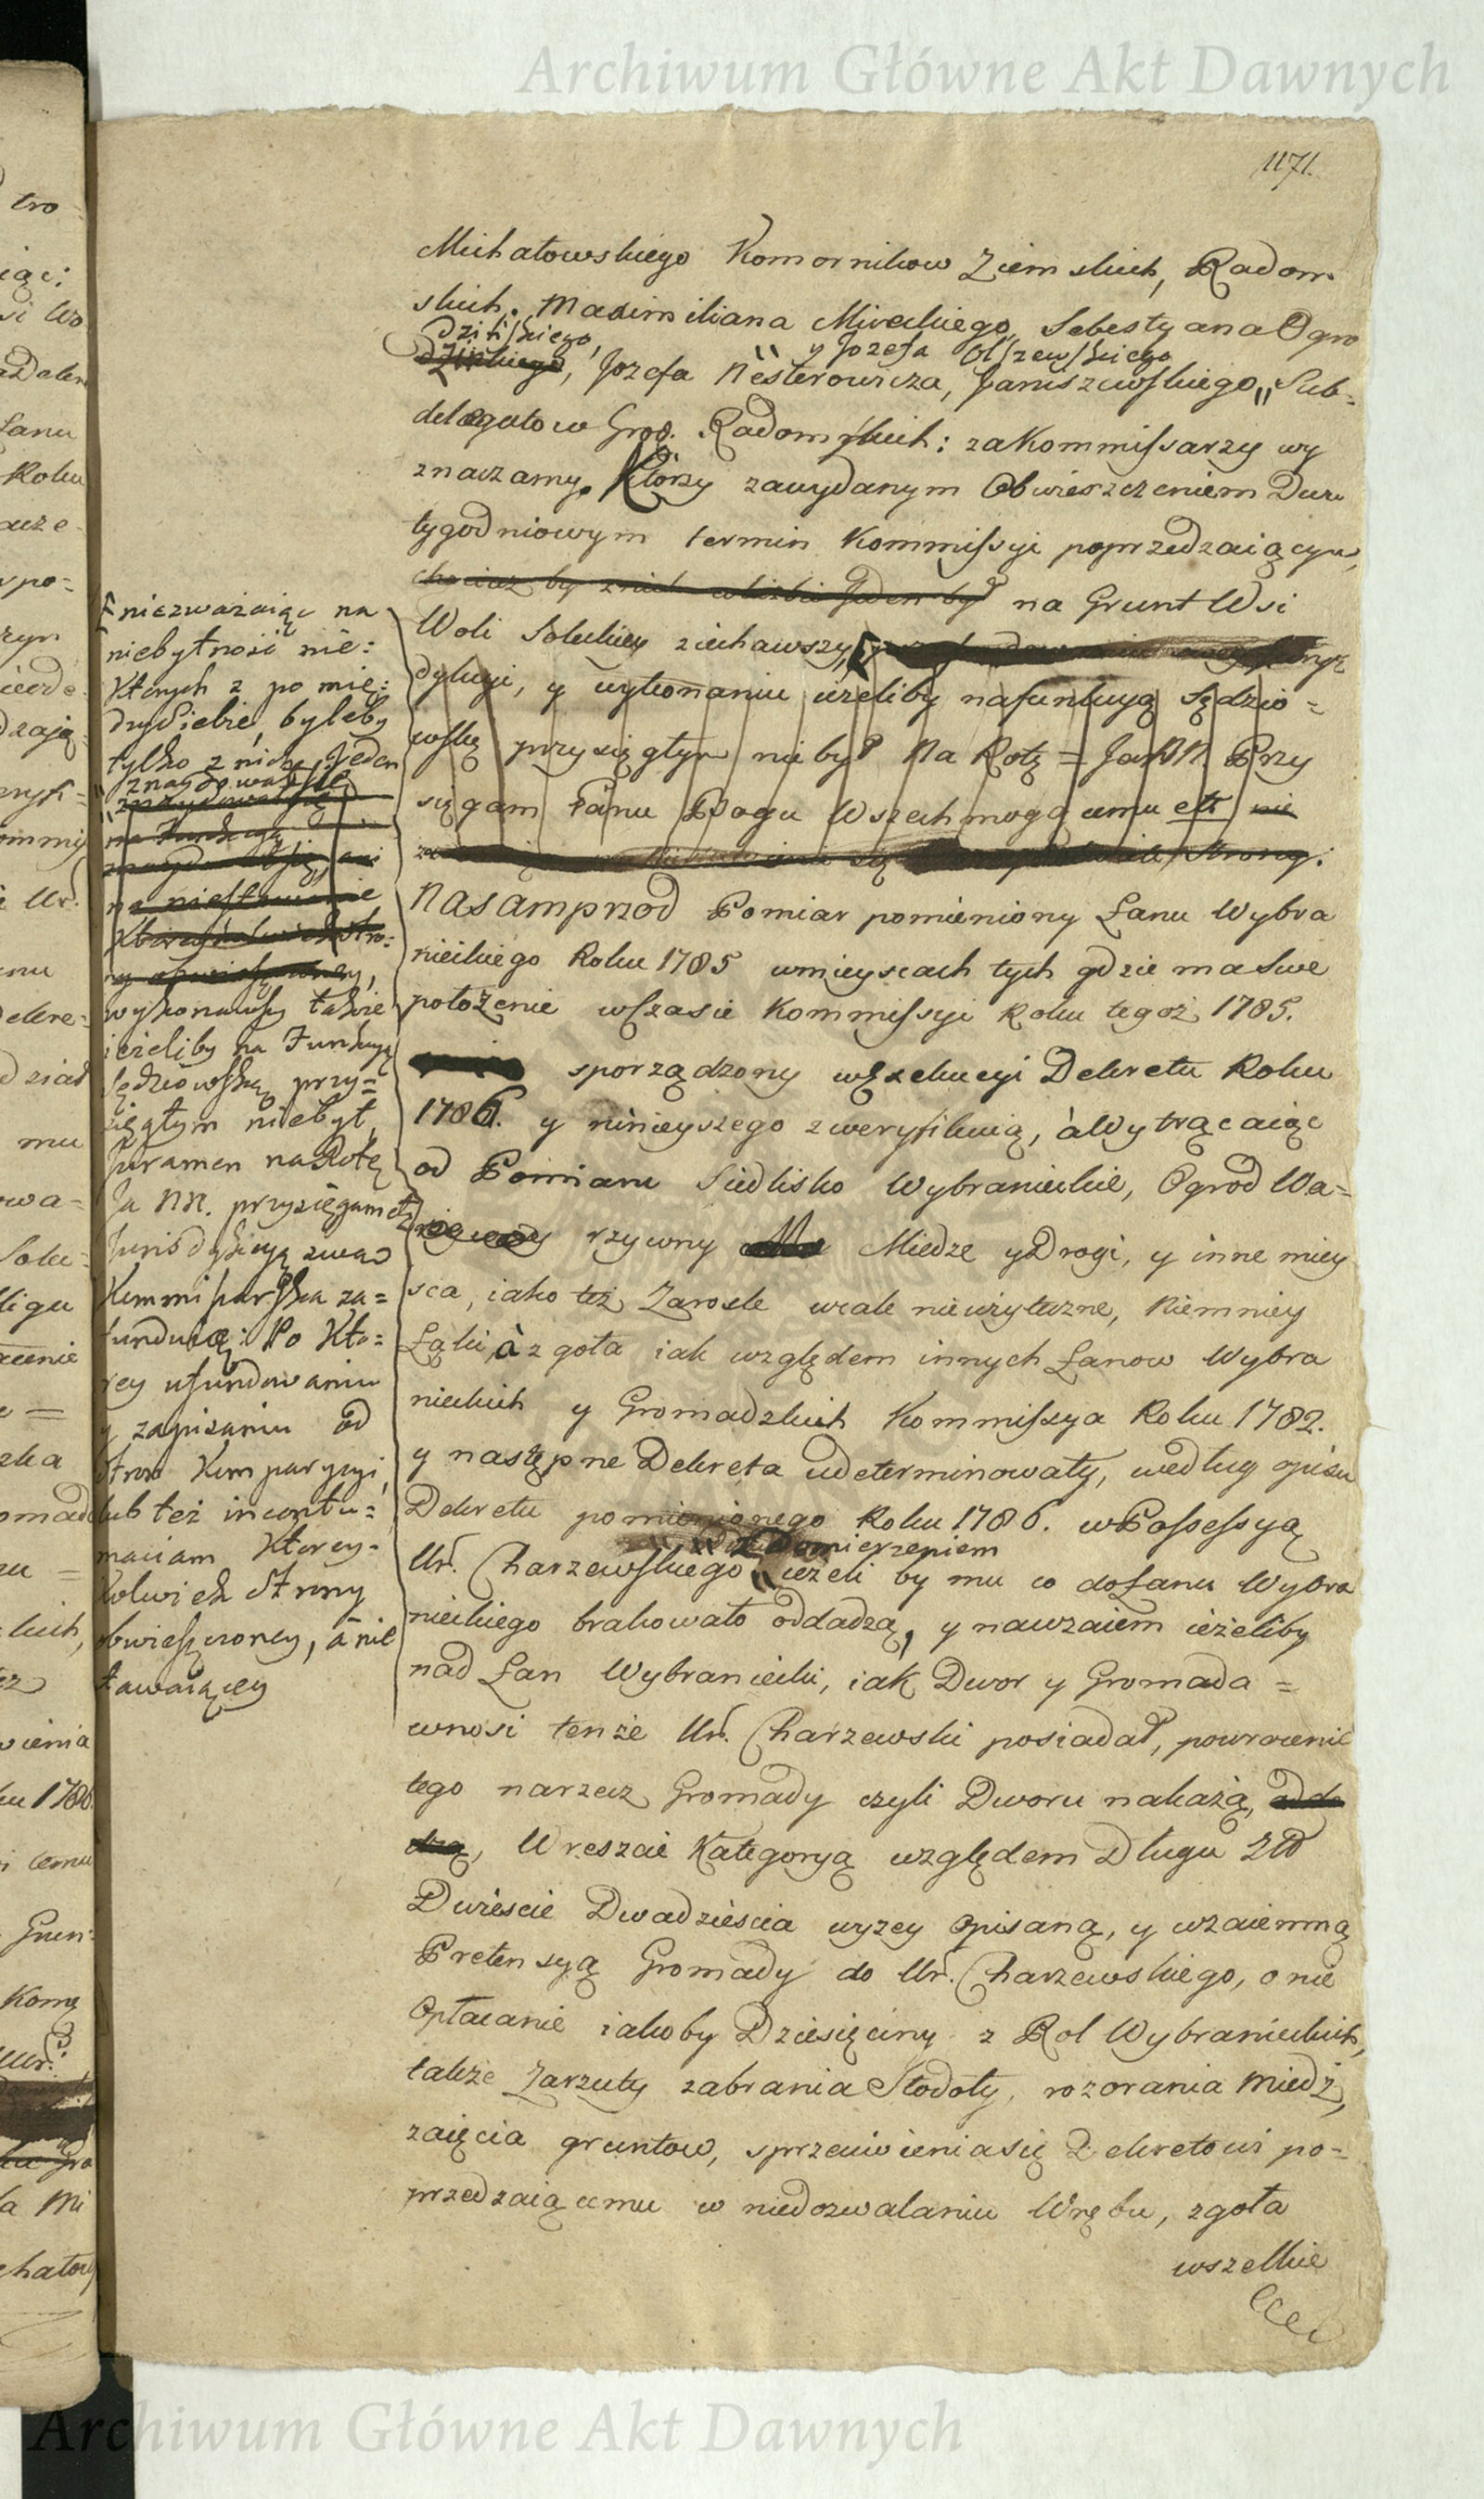 Archiwum Główne Akt Dawnych
1171.
Michałowskiego Komornikow Ziemskich, Radom
skich. Maximiliana Mireckiego, Sebestyana Ogro
dzińskiego,
y Jozefa Olszewskiego
dzinskiego, Jozefa Nesterowicza, Janiszewskiego,, Sub-
delegatow Grod. Radomskich: za Kommissarzy wy
znaczamy. Ktorzy zawydanym Obwieszczeniem Dwu
tygodniowym termin Kommissyi poprzedzaiącym,
chociaż by z nich jeden był na Grunt Wsi
Woli Soleckiey ziechawszy,
dykcyi, y wykonaniu ieżeliby nafunkcyą Sędzio=
wską przysięgłym niebył Na Rotę = Ja NN. Przy
sięgam Panu Bogu Wszechmogącemu etc nie
strony.
Nasamprzod Pomiar pomieniony Łanu Wybra
nieckiego Roku 1785 wmieyscach tych gdzie ma Swe
położenie wczasie Kommissyi Roku tegoż 1785.
sporządzony wexekucyi Dekretu Roku
1786. y ninieyszego zweryfikuią, à Wytrącaiąc
od Pomiaru Siedlisko Wybranieckie, Ogrod Wa=
rzywny Miedze y Drogi, y inne miey
sca, iako też Zarosle wcale nieużyteczne, Niemniey
Łąki, à zgoła iak względem innych Łanow Wybra
nieckich y Gromadzkich Kommissya Roku 1782.
y następne Dekreta udeterminowały, według opisu
Dekretu pomienionego Roku 1786. w Possessyą
z Domierzeniem
Ur. Charzewskiego,, ieżeli by mu co do Łanu Wybra
nieckiego brakowało oddadzą, y nawzaiem ieżeliby
nad Łan Wybraniecki, iak Dwor y Gromada =
wnosi tenże Ur. Charzewski posiadał, powrocenie
tego narzecz Gromady czyli Dworu nakażą, odda
dzą, Wreszcie Kategoryą względem Długu Zło
Dwieście Dwadzieścia wyżey Opisaną, y wzaiemną
Pretensyą Gromady do Ur. Charzewskiego, o nie
Opłacanie iakoby Dziesięciny z Rol Wybranieckich,
także Zarzuty zabrania Stodoły, rozorania Miedz,
zaięcia gruntow, sprzeciwieniasię Dekretowi po=
przedzaiącemu w niedozwalaniu Wrębu, zgoła
wszelkie
niezważaiąc na
niebytność nie:
których z po mię:
dzy Siebie, byleby
tylko z nich Jeden
znaydował się
znaydował się
na Funkcyą
ani
na niestawanie
Ktoreykolwiek Stro=
ny obwieszczoney,
wykonawszy także
ieżeliby na Funkcyą
Sędziowską przy=
sięgłym niebył,
Juramen na Rotę
Ja NN. przysięgam etc
Jurisdykcyą swą
Kommissarską za=
funduią: Po Kto=
rey ufundowaniu
y zapisaniu od
Stron Komparycyi,
lub też incontu=
maciam Ktorey-
kolwiek Strony
obwieszczoney, à nie
stawaiącey
Archiwum Główne Akt Dawnych